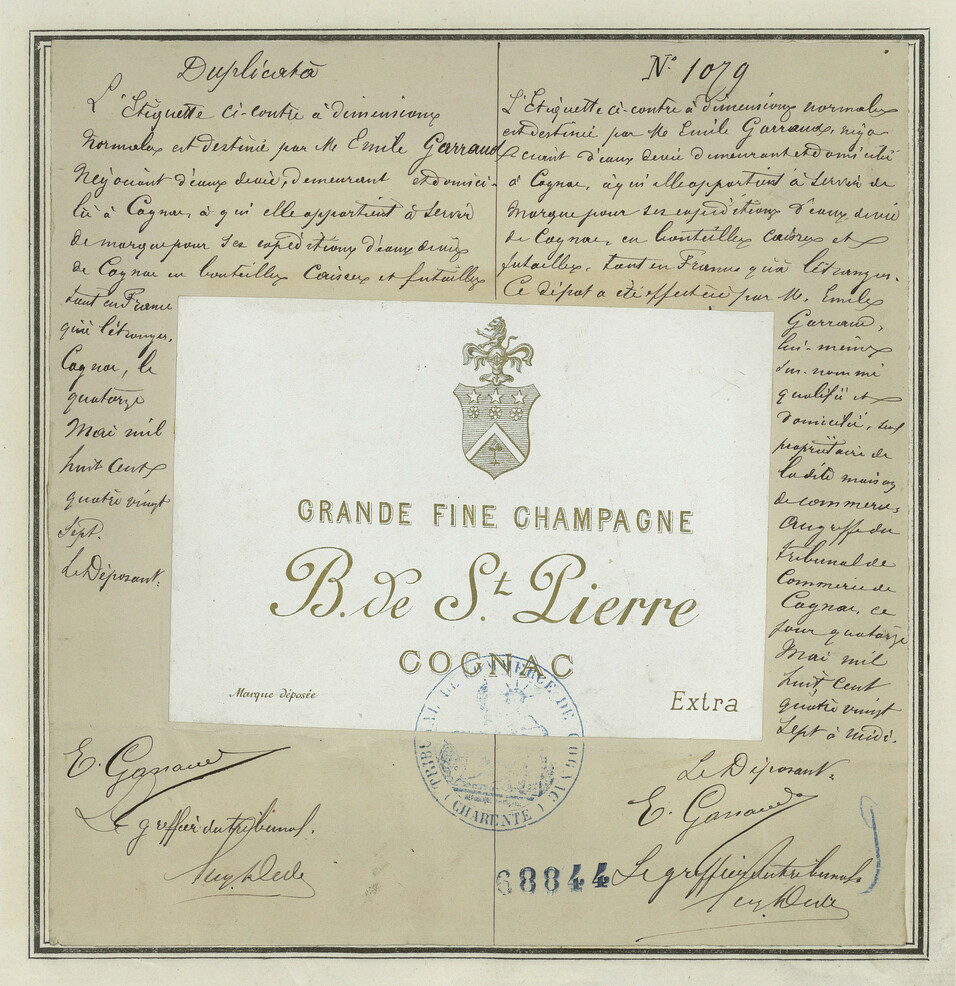 Duplicata
L'Etiquette ci-contre à dimensions
normales est destinée par Mr Emile Garraud
Négociant d'eaux devie, demeurant et domici-
lié à Cognac, à qui elle appartient à servir
de marque pour ses expéditions d'eaux devie
de Cognac en bouteilles Caisses et futailles
tant en France
qu'à l'étranger.
Cognac, le
quatorze
Mai mil
huit Cent
quatre vingt
Sept.
Le Déposant.
E. Garraud
Le greffier du tribunal.
N° 1079
L'Etiquette ci-contre à dimensions normales
est destinée par Mr Emile Garraud, négo-
ciant d'eaux devie demeurant et domicilié
à Cognac, à qui elle appartient à servir de
Marque pour ses expéditions d'eaux devie
de Cognac, en bouteilles caisses et
futailles, tant en France qu'à l'étranger.
Ce dépot a été effectué par M. Emile
Garraud,
lui-même
sus-nommé
qualifié et
domicilié, seul
propriétaire de
la dite maison
de commerce,
au greffe du
tribunal de
Commerce de
Cognac, ce
jour quatorze
Mai mil
huit Cent
quatre vingt
Sept à midi.
Le Déposant.
E. Garraud
Le greffier du tribunal.
GRANDE FINE CHAMPAGNE
B. de St. Pierre
COGNAC
Marque déposée
Extra
TRIBUNAL DE COMMERCE DE COGNAC
(CHARENTE)
68844